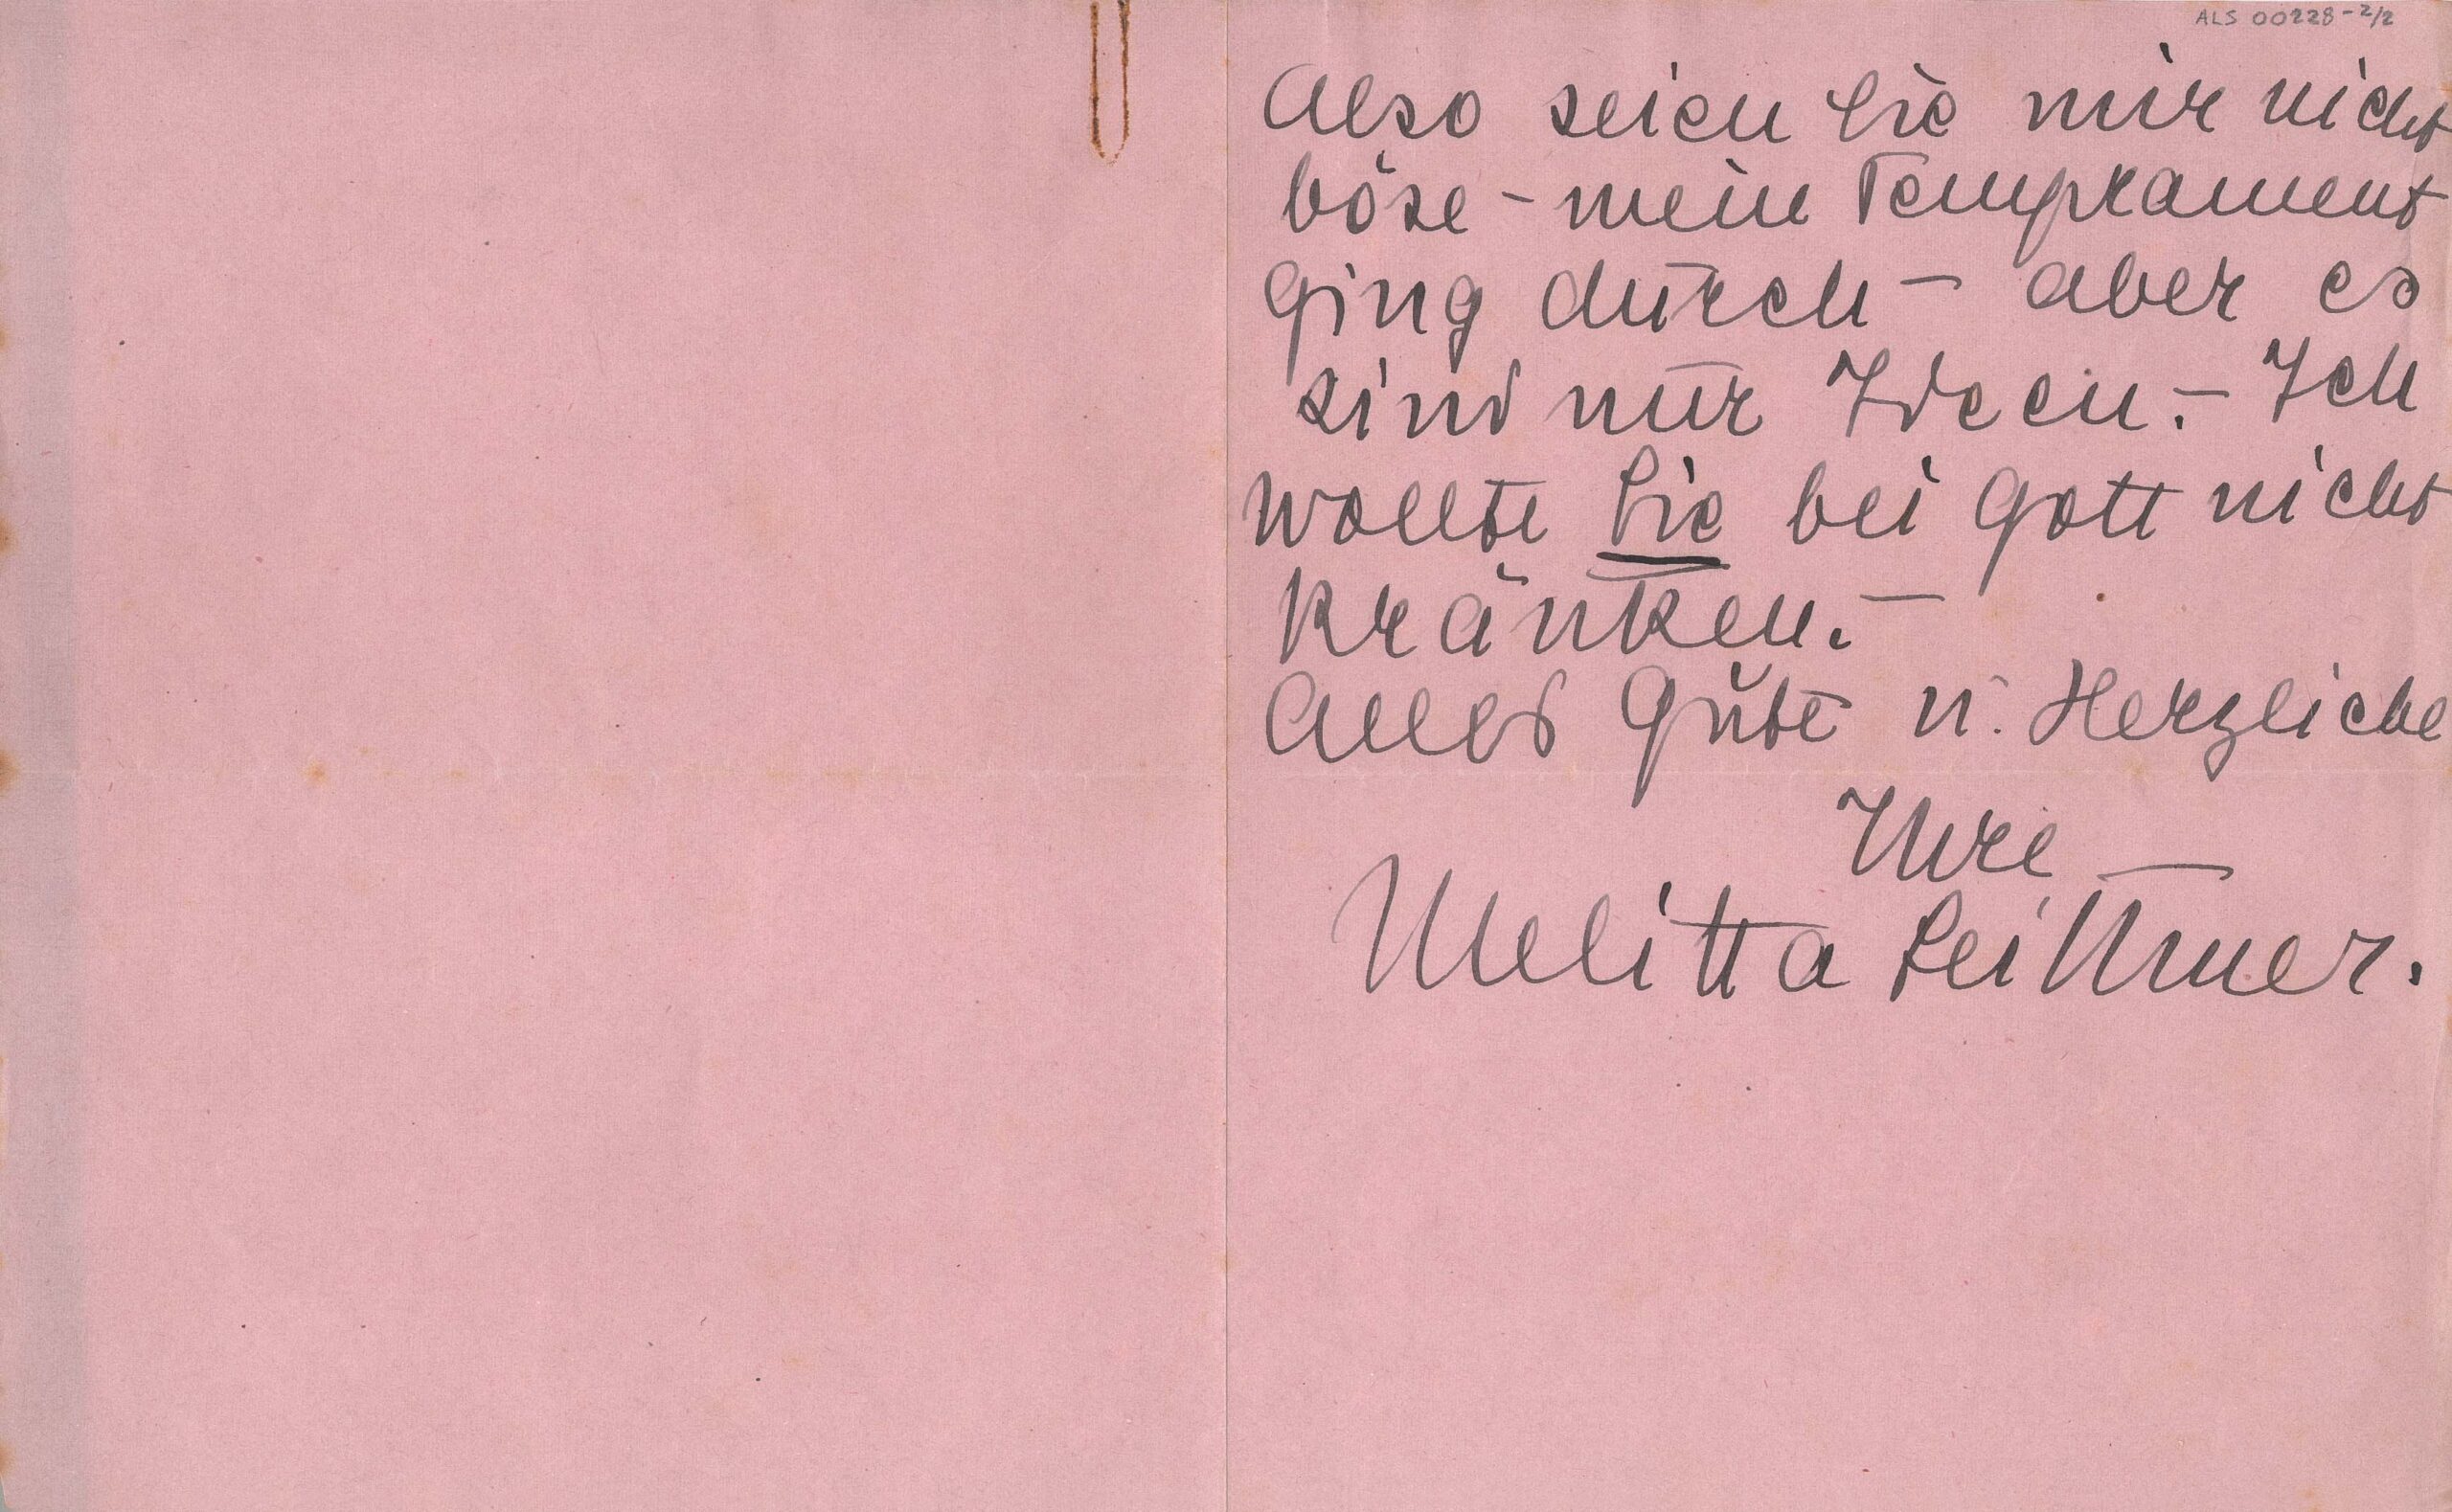 ALS 00228-2/2
Also seien Sie mir nicht
böse - mein Temprament
ging durch - aber es
sind nur Ideen. - Ich
wollte Sie bei Gott nicht
kränken. -
Alles Gute u. Herzliche
Ihre
Melitta Leithner.